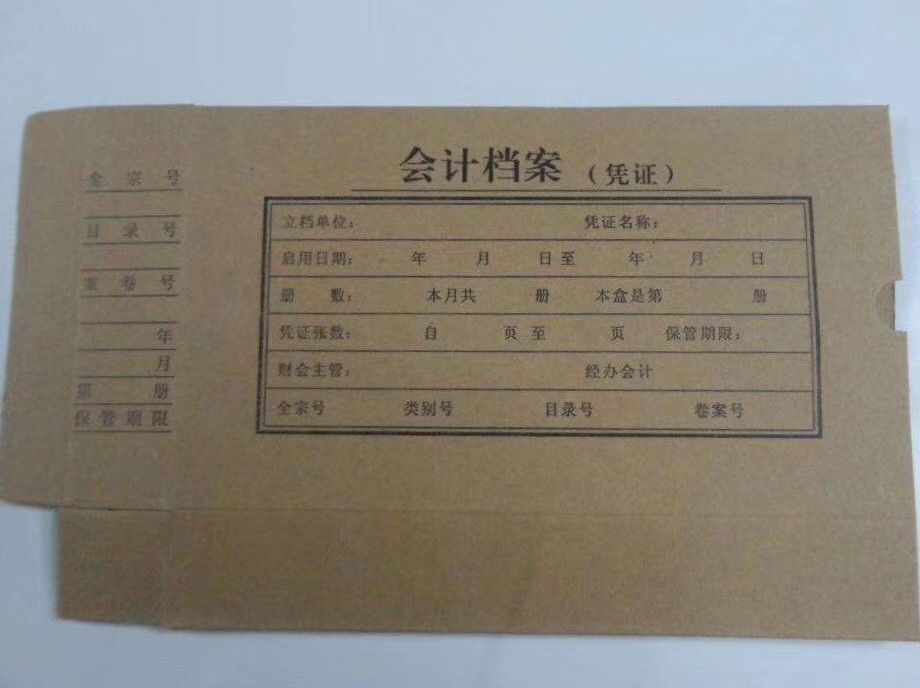 会计档案 (凭证)
立档单位: 凭证名称:
启用日期: 年 月 日 至 年 月 日
册 数: 本月共 册 本盒是第 册
凭证张数: 自 页 至 页 保管期限:
财会主管: 经办会计
全宗号 类别号 目录号 卷案号
全宗号
目录号
案卷号
年
月
第 册
保管期限